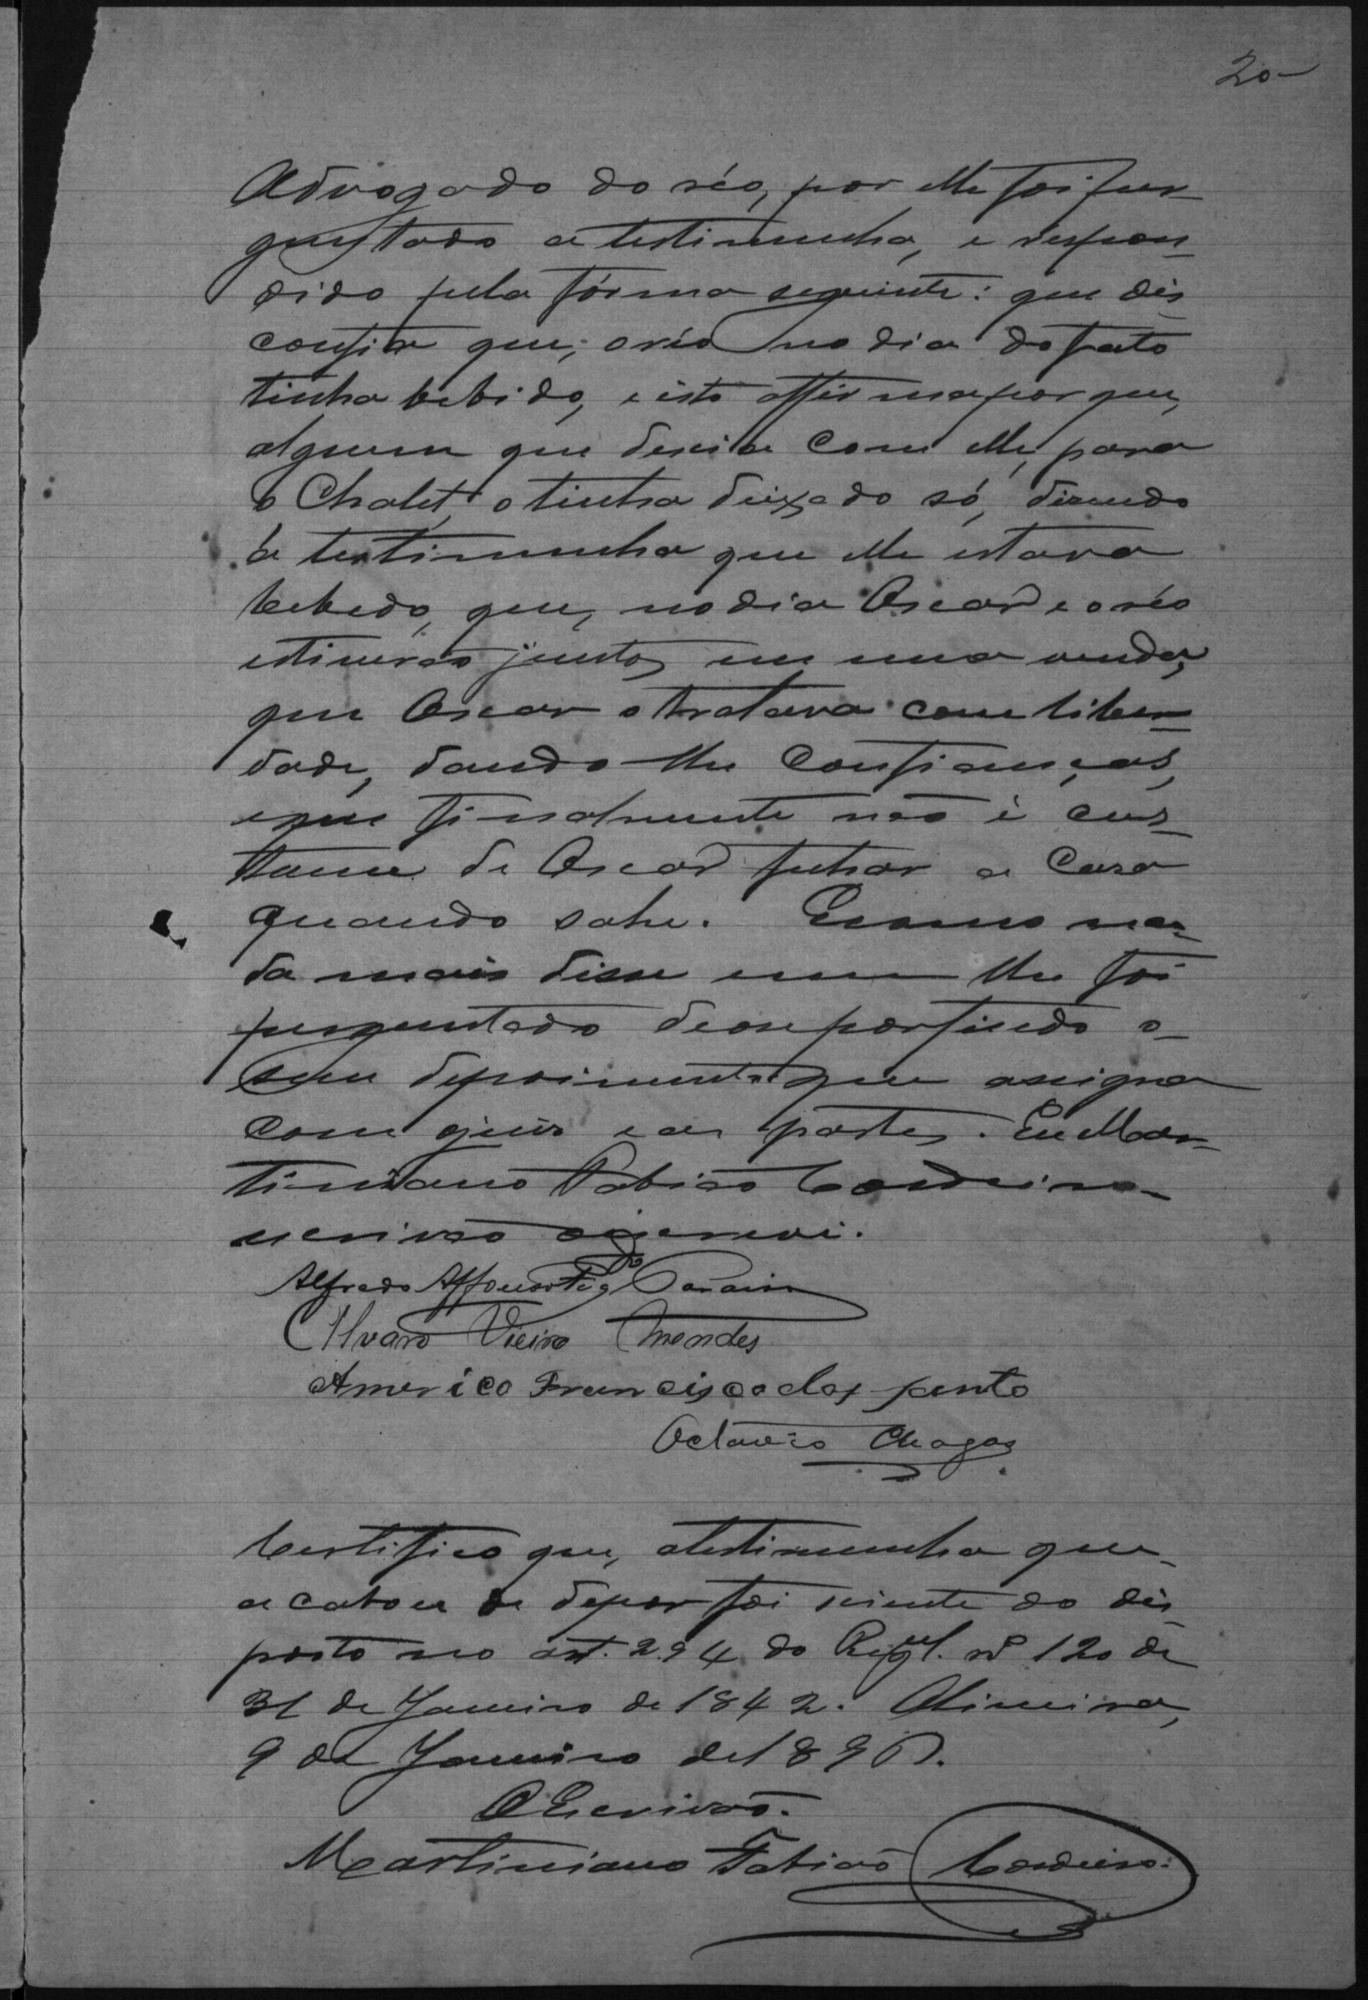 20
Advogado do réo, por elle foi per-
guntado a testimunha, e respon-
dido pela fórma seguinte: que dis
confia que, o réo no dia do facto
tinha bebido, e isto affirma por que,
alguem que descia com elle, para
o Chalet, o tinha deixado só, disendo
á testimunha que elle estava
bebedo, que, no dia Oscar e o réo
estiverão juntos em uma venda,
que Oscar o tratava com liber-
dade, dando-lhe confianças,
e que finalmente não é cus-
tume de Oscar fechar a casa
quando sahe. E como na-
da mais disse nem lhe foi
perguntado deo-se por findo o
seu depoimento que assigna
com o juiz e as partes. Eu Mar-
tiniano Fabião Cordeiro
escrivão o escrevi.
Alfredo Affonso
Alvaro Vieira Mendes
Americo Francisco da pento
Octavio Chagas
Certifico que, a testimunha que
acabou de depor foi sciente do dis
posto no art. 294 do Regul. nº 120 de
31 de Janeiro de 1842.
9 de Janeiro de 189
O Escrivão.
Martiniano Fabião Cordeiro.